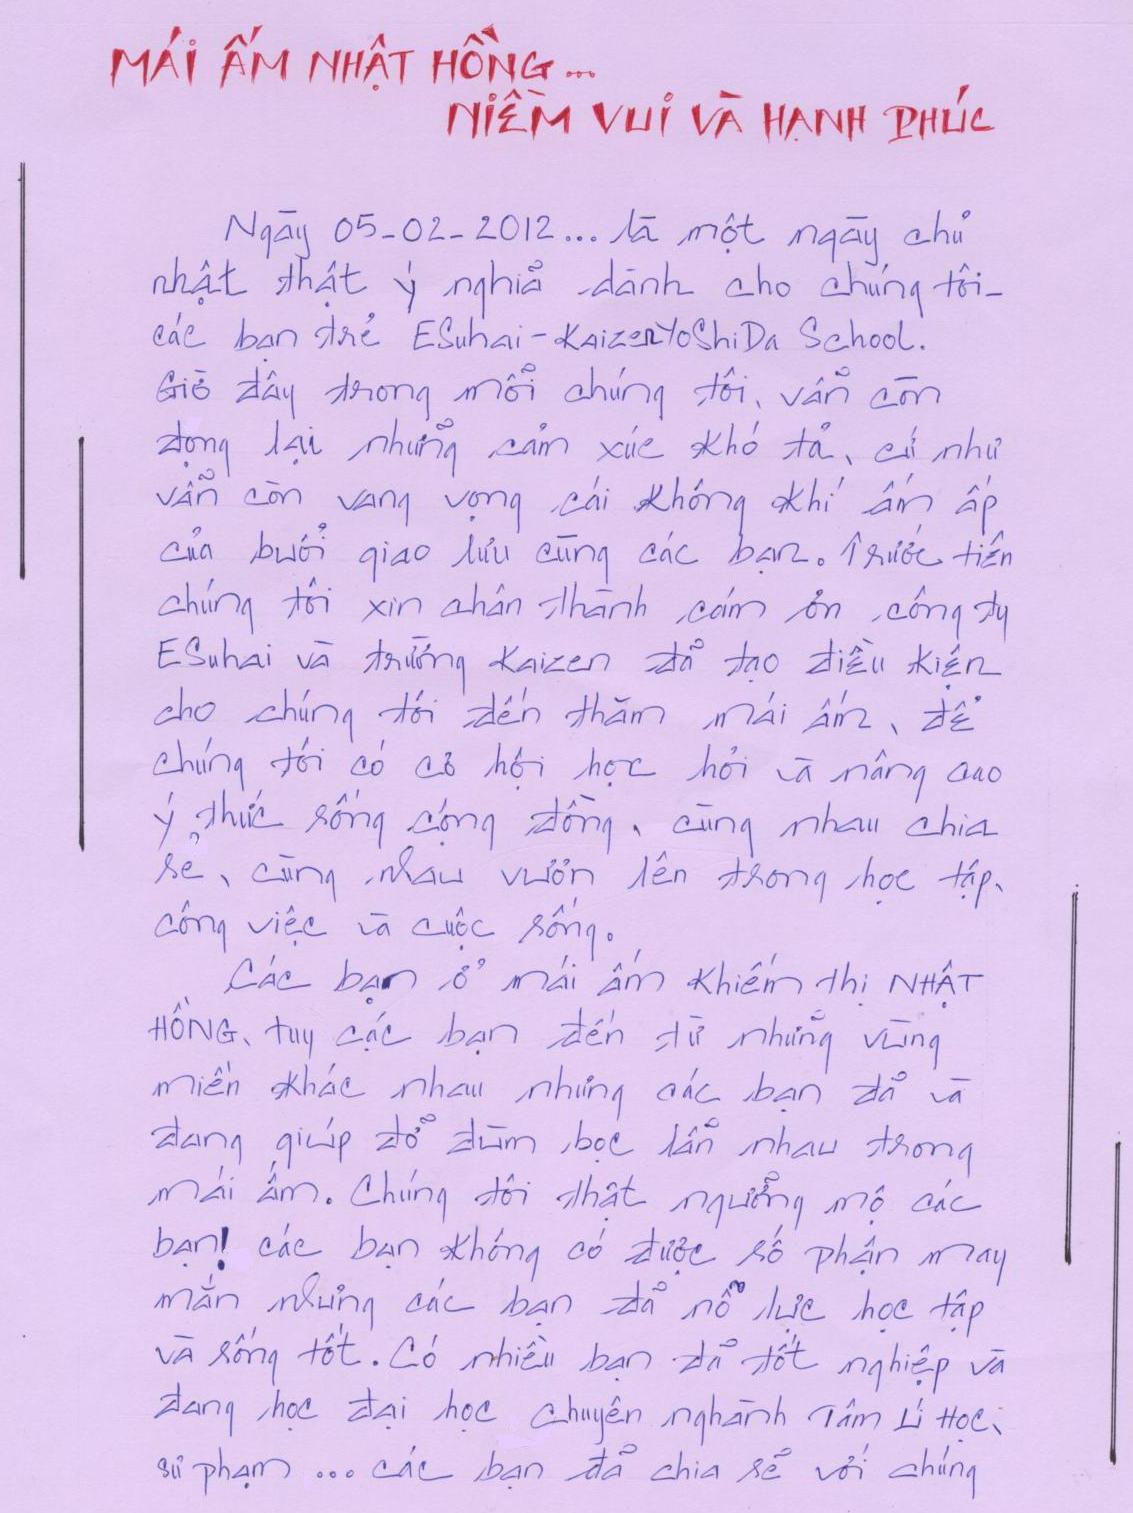 MÁI ẤM NHẬT HỒNG...
NIỀM VUI VÀ HẠNH PHÚC
Ngày 05-02-2012... là một ngày chủ
nhật thật ý nghĩa dành cho chúng tôi-
các bạn trẻ ESuhai-KaizenYoShiDa School.
Giờ đây trong mỗi chúng tôi, vẫn còn
đọng lại những cảm xúc khó tả, cứ như
vẫn còn vang vọng cái không khí ấm áp
của buổi giao lưu cùng các bạn. Trước tiên
chúng tôi xin chân thành cám ơn công ty
ESuhai và trường Kaizen đã tạo điều kiện
cho chúng tôi đến thăm mái ấm, để
chúng tôi có cơ hội học hỏi và nâng cao
ý thức sống cộng đồng, cùng nhau chia
sẻ, cùng nhau vươn lên trong học tập,
công việc và cuộc sống.
Các bạn ở mái ấm khiếm thị NHẬT
HỒNG, tuy các bạn đến từ những vùng
miền khác nhau nhưng các bạn đã và
đang giúp đỡ đùm bọc lẫn nhau trong
mái ấm. Chúng tôi thật ngưỡng mộ các
bạn! các bạn không có được số phận may
mắn nhưng các bạn đã nỗ lực học tập
và sống tốt. Có nhiều bạn đã tốt nghiệp và
đang học đại học chuyên nghành Tâm Lí Học,
sư phạm ... các bạn đã chia sẻ với chúng